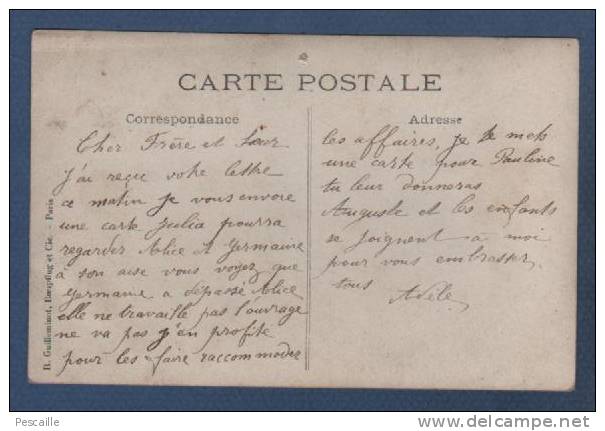 CARTE POSTALE
Correspondance
Cher Frère et Sœur
J'ai reçu votre lettre
ce matin je vous envoie
une carte Julia pourra
regarder Alice et Germaine
à son aise vous voyez que
Germaine a dépassé Alice
elle ne travaille pas l'ouvrage
ne va pas j'en profite
pour les faire raccommoder
Adresse
les affaires, je te mets
une carte pour Pauline
tu leur donneras
Auguste et les enfants
se joignent à moi
pour vous embrasser
tous
Adèle
R. Guilleminot, Bœspflug et Cie. - Paris
Pescaille
www.delcampe.net